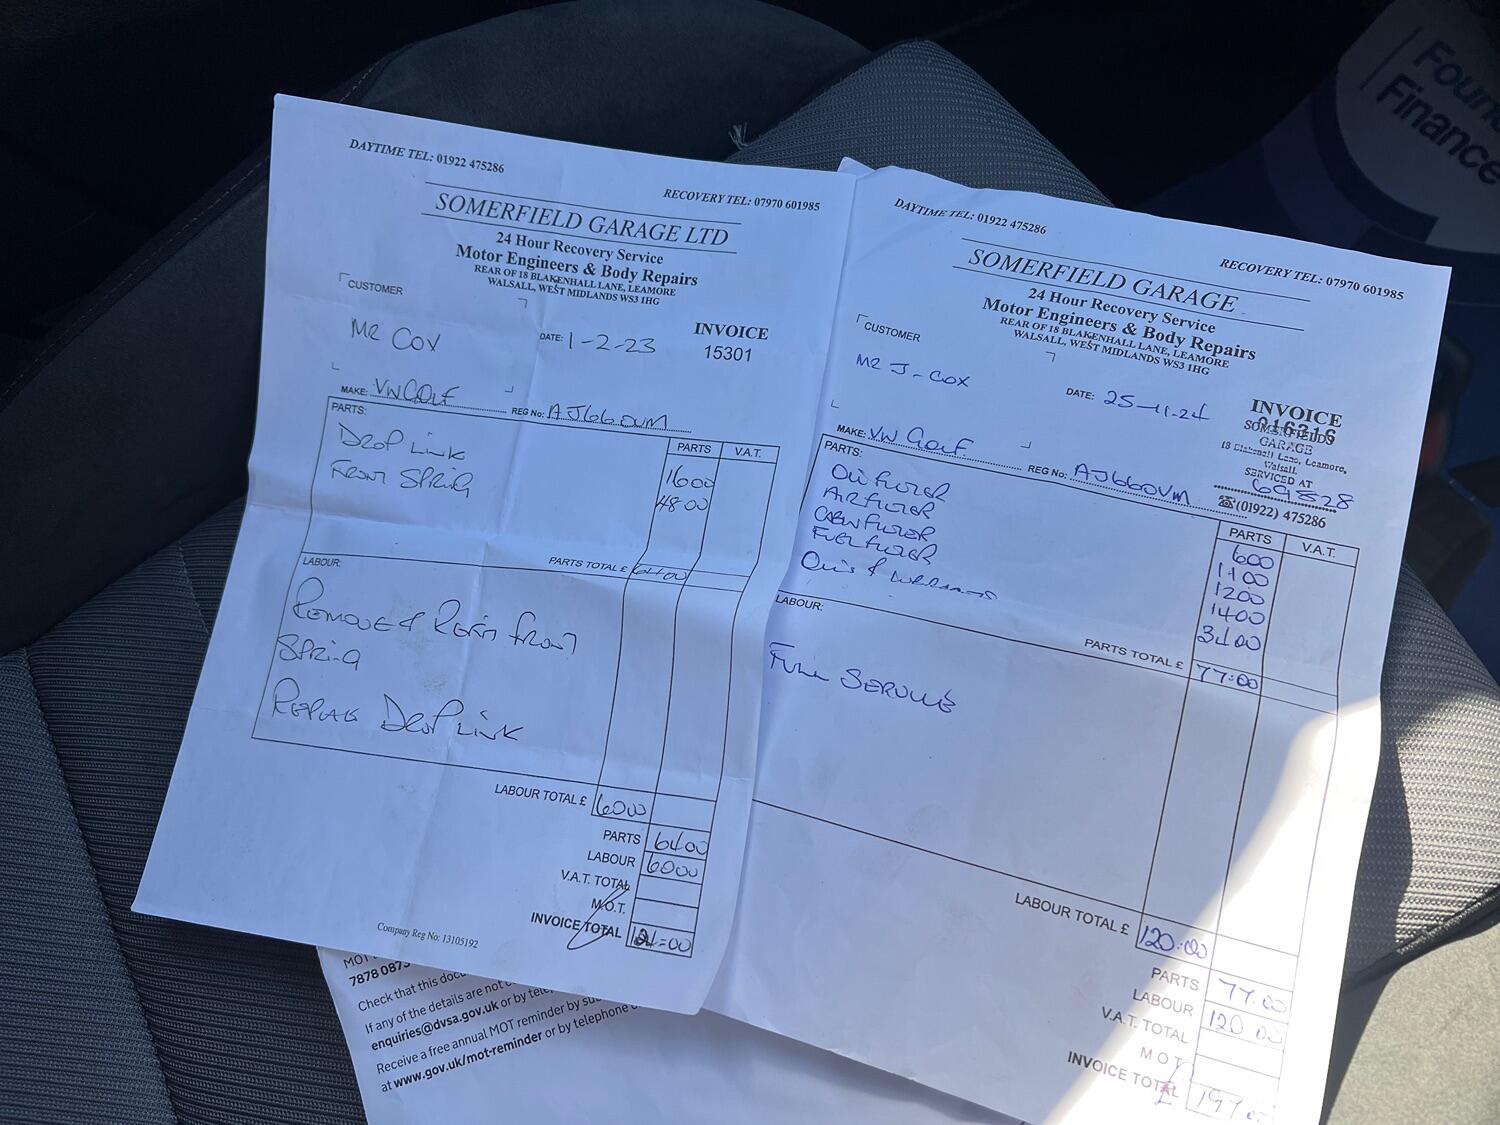 DAYTIME TEL: 01922 475286
RECOVERY TEL: 07970 601985
SOMERFIELD GARAGE LTD
24 Hour Recovery Service
Motor Engineers & Body Repairs
REAR OF 18 BLAKENHALL LANE, LEAMORE
WALSALL, WEST MIDLANDS WS3 1HG
CUSTOMER
INVOICE
15301
MR COX
DATE: 1-2-23
MAKE: VW GOLF REG No: AJ66OVM
PARTS: PARTS V.A.T.
DROP LINK 1600
FRONT SPRING 48.00
PARTS TOTAL £ 6400
LABOUR:
REMOVE & REFIT FRONT
SPRING
REPLACE DROP LINK
LABOUR TOTAL £ 6000
PARTS 6400
LABOUR 6000
V.A.T. TOTAL
M.O.T.
INVOICE TOTAL 124=00
Company Reg No: 13105192
DAYTIME TEL: 01922 475286
RECOVERY TEL: 07970 601985
SOMERFIELD GARAGE
24 Hour Recovery Service
Motor Engineers & Body Repairs
REAR OF 18 BLAKENHALL LANE, LEAMORE
WALSALL, WEST MIDLANDS WS3 1HG
CUSTOMER
MR J-COX
DATE: 25-11-24
INVOICE
016316
SOMERFIELDS
GARAGE
18 Blakenall Lane, Leamore,
Walsall.
SERVICED AT
69828
☎(01922) 475286
MAKE: VW Golf REG No: AJ66OVM
PARTS: PARTS V.A.T.
OIL FILTER 600
AIR FILTER 1100
CABIN FILTER 1200
FUEL FILTER 1400
OILS & 3400
PARTS TOTAL £ 77:00
LABOUR:
FULL SERVICE
LABOUR TOTAL £ 120:00
PARTS 77.00
LABOUR 120 00
V.A.T. TOTAL
M O T
INVOICE TOTAL £ 197
MOT
7878 087
Check that this doc
If any of the details are not
enquiries@dvsa.gov.uk or by tele
Receive a free annual MOT reminder by su
at www.gov.uk/mot-reminder or by telephone
Foun
Finance